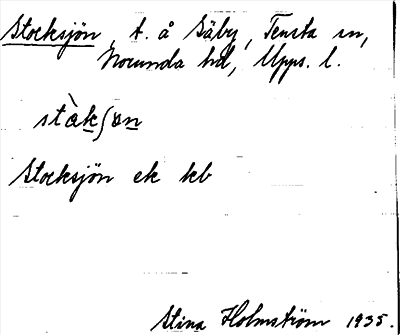 Stocksjön, t. å Säby, Tensta sn,
Norunda hd, Upps. l.
stàkʃøn
Stocksjön ek kb
Stina Holmström 1935.